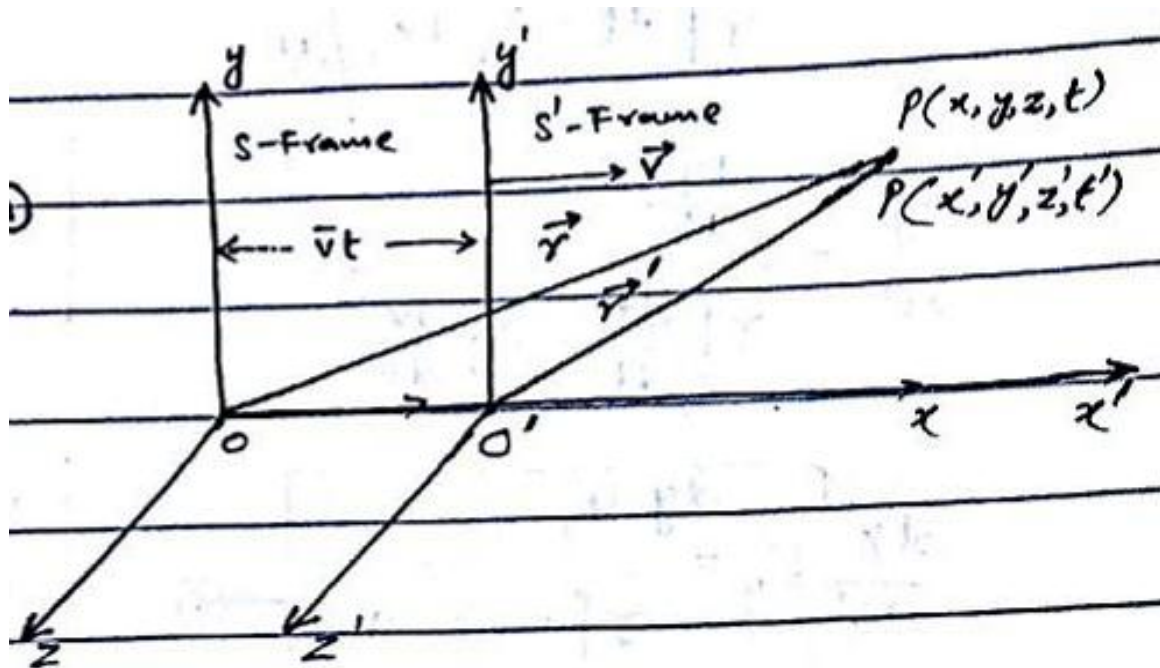 y y'
S-Frame S'-Frame
P(x, y, z, t)
→v
P(x', y', z', t')
v̄t
→r
→r'
O O' x x'
z z'